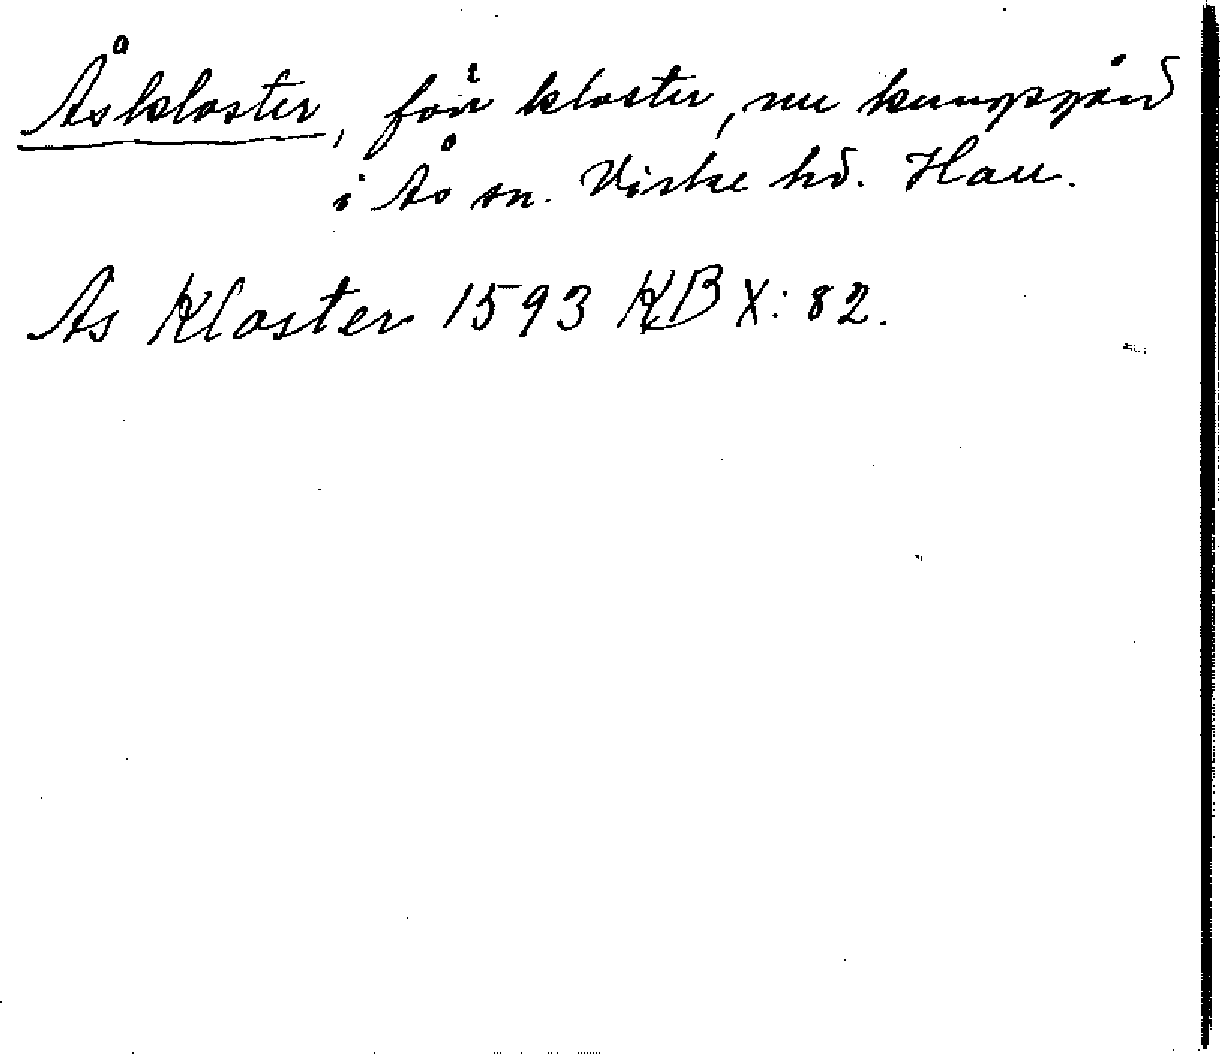 Åskloster, förr kloster, nu kungsgård
i Ås sn. Viske hd. Hall.
As Kloster 1593 KB X: 82.